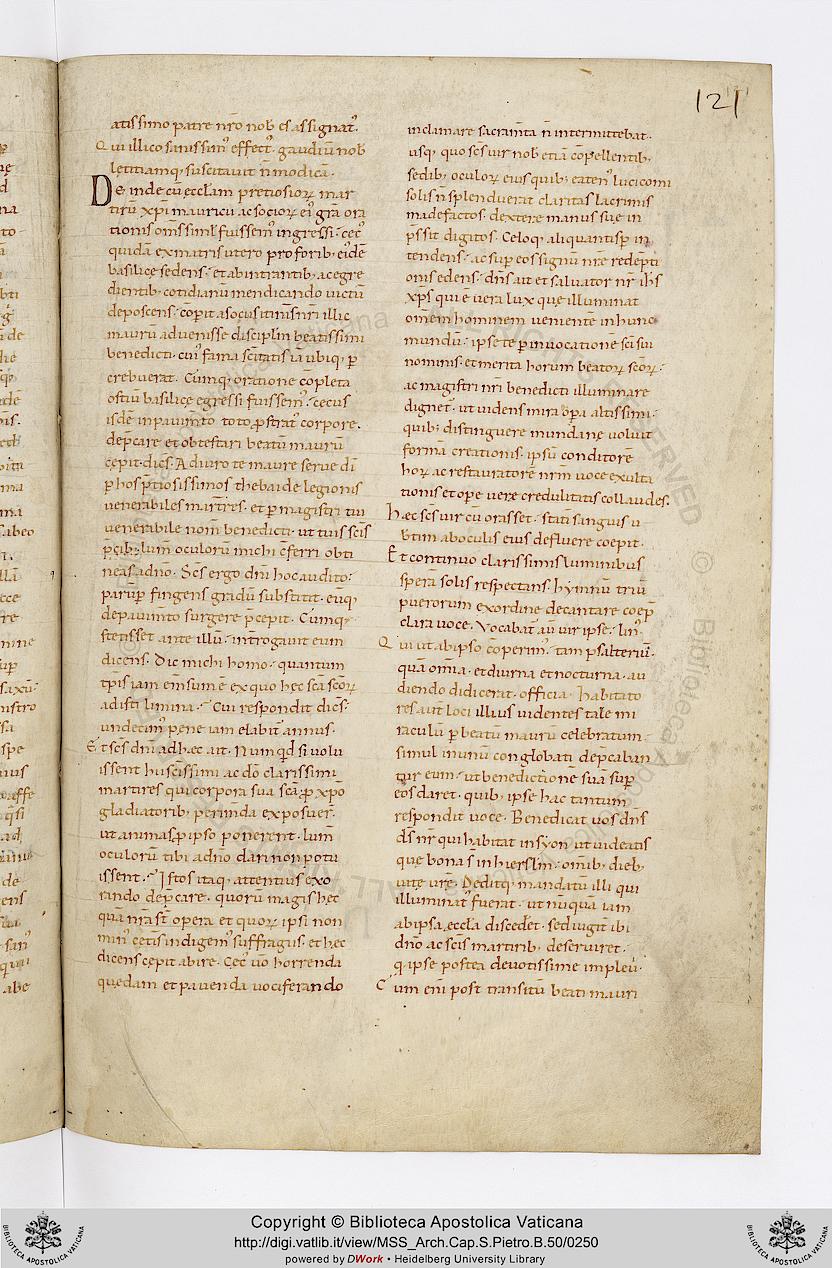 121
atissimo patre nr̄o nob̄ es assignat᷒.
Qui illico sanissim᷒ effect᷒. gaudiū nob
lętitiamq; suscitavit n̄ modica.
Deinde cū ęcclam pretiosior ꝝ mar
tirū xp̄i mauricii ac socior ꝝ ei᷒ gr̄a ora
tionis om̄s simł fuissem᷒ ingressi. cęc᷒
quidā ex matris utero pro forib; ei᷒dē
basilicę sedens. et ab intrantib; ac egre
dientib; cotidianū mendicando victū
deposcens. cōpit a sociis itineris nr̄i illic
maurū advenisse discipłm beatissimi
benedicti. cui᷒ fama sc̄itatis ia ubiq; ꝑ
crebuerat. Cumq; oratione cōpleta
ostiū basilicę egressi fuissem᷒. cęcus
isdē in pavim̄to toto ꝓstrat᷒ corpore.
dep̄care et obtestari beatū maurū
cepit dic̄s. Adiuro te maure serve dī
ꝑ hos p̄tiosissimos thebaide legionis
venerabiles martires. et ꝑ magistri tui
venerabile nom̄ benedicti. ut tuis sc̄is
p̄cib; lum̄ oculorū michi c̄ferri obti
neas a dn̄o. Sc̄s ergo dn̄i hoc audito.
parūꝑ fingens gradū substitit. eūq;
de pavim̄to surgere p̄cepit. Cumq;
stetisset ante illū. int̄rogavit eum
dicens. Dic michi homo. quantum
tp̄is iam em̄sum ē ex quo hec sc̄a sc̄or ꝝ
adisti limina. Cui respondit dic̄s.
undecim᷒ pene iam elabit᷒ annus.
Et sc̄s dn̄i ad hęc ait. Numqd̄ si volu
issent hii sc̄issimi ac dō clarissimi
martires qui corpora sua sc̄a ꝓ xp̄o
gladiatorib; perim̄da exposuer᷒.
ut animas ꝓ ipso ponerent. lum̄
oculorū tibi a dn̄o dari non potu
issent. Istos itaq; attentius exo
rando dep̄care. quorū magis hęc
quā nr̄a st̄ opera et quor ꝝ ipsi non
min᷒ cęt̄is indigem᷒ suffragiis. et hęc
dicens cępit abire. Cęc᷒ ūo horrenda
quędam et pavenda vociferando
inclamare sacram̄ta n̄ intermittebat.
usq; quo sc̄s vir nob̄ etiā cōpellentib;
sedib; oculor ꝝ eius quib; eaten᷒ luci comi
solis n̄ splenduerat claritas lacrimis
madefactos. dexterę manus suę in
p̄ssit digitos. Celoq; aliquantisꝑ in
tendens. ac suꝑ eos signū nrę redēpti
onis edens. dn̄s ait et salvator nr̄ ih̄s
xp̄s qui ē vera lux quę illuminat
om̄em hominem venientē in hunc
mundū. ipse te ꝑ invocatione sc̄i sui
nominis. et merita horum beator ꝝ sc̄or ꝝ.
ac magistri nr̄i benedicti illuminare
dignet᷒. ut videns mira opa altissimi.
quib; distinguere mundanę voluit
formā creationis. ipsū conditorē
hor ꝝ ac restauratorē nr̄m voce exulta
tionis et ope verę credulitatis collaudes.
Hęc sc̄s vir cū orasset. statī sanguis u
b̄tim ab oculis eius defluere coepit.
Et continuo clarissimis luminibus
sperā solis respectans. hymnū triū
puerorum ex ordine decantare coep̄
clara voce. Vocabat᷒ aū vir ipse. lin᷒.
Qui ut ab ipso cōperim᷒. tam psalteriū.
quā om̄ia. et diurna et nocturna. au
diendo didicerat. officia. Habitato
res aūt loci illius videntes tale mi
raculū ꝑ beatū maurū celebratum.
simul in unū conglobati dep̄caban
tur eum. ut benedictionē suā suꝑ
eos daret. quib; ipse hac tantum
respondit voce. Benedicat vos dn̄s
dš nr̄ qui habitat in syon ut videatis
quę bona s̄ in hierslm̄. om̄ib; dieb;
vitę vr̄ę. Deditq; mandatū illi qui
illuminat᷒ fuerat. ut nuquā iam
ab ipsa ęccła discedet. sed iugit̄ ibi
dn̄o ac sc̄is martirib; deserviret.
q̄ ipse postea devotissime implev̄.
Cum em̄ post transitū beati mauri
Copyright © Biblioteca Apostolica Vaticana
http://digi.vatlib.it/view/MSS_Arch.Cap.S.Pietro.B.50/0250
powered by DWork • Heidelberg University Library